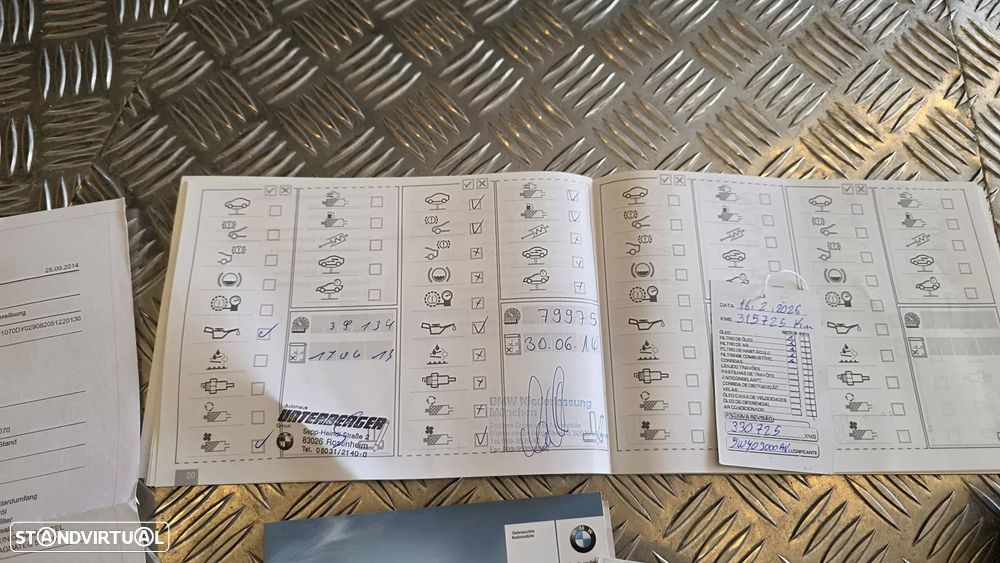 25.09.2014
1070DY029082061220130
070
Stand
dardumfang
STANDVIRTUAL
20
39 134
17 06 13
Autohaus
UNTERBERGER
Sepp-Heindl-Straße 2
83026 Rosenheim
Tel. 08031/2140-0
79975
30.06.14
BMW Niederlassung
München
DATA 16.2.2026
KMS 315725 Km
ÓLEO
FILTRO DE ÓLEO
FILTRO DE AR
FILTRO DE HABITÁCULO
FILTRO DE COMBUSTÍVEL
CORREIAS
LÍQUIDO TRAVÕES
PASTILHAS DE TRAVÕES
ANTICONGELANTE
CORREIA DE DISTRIBUIÇÃO
VELAS
ÓLEO CAIXA DE VELOCIDADES
ÓLEO DO DIFERENCIAL
AR CONDICIONADO
PRÓXIMA REVISÃO
330725 KMS
LUBRIFICANTE
Gebrauchte
Automobile
BMW